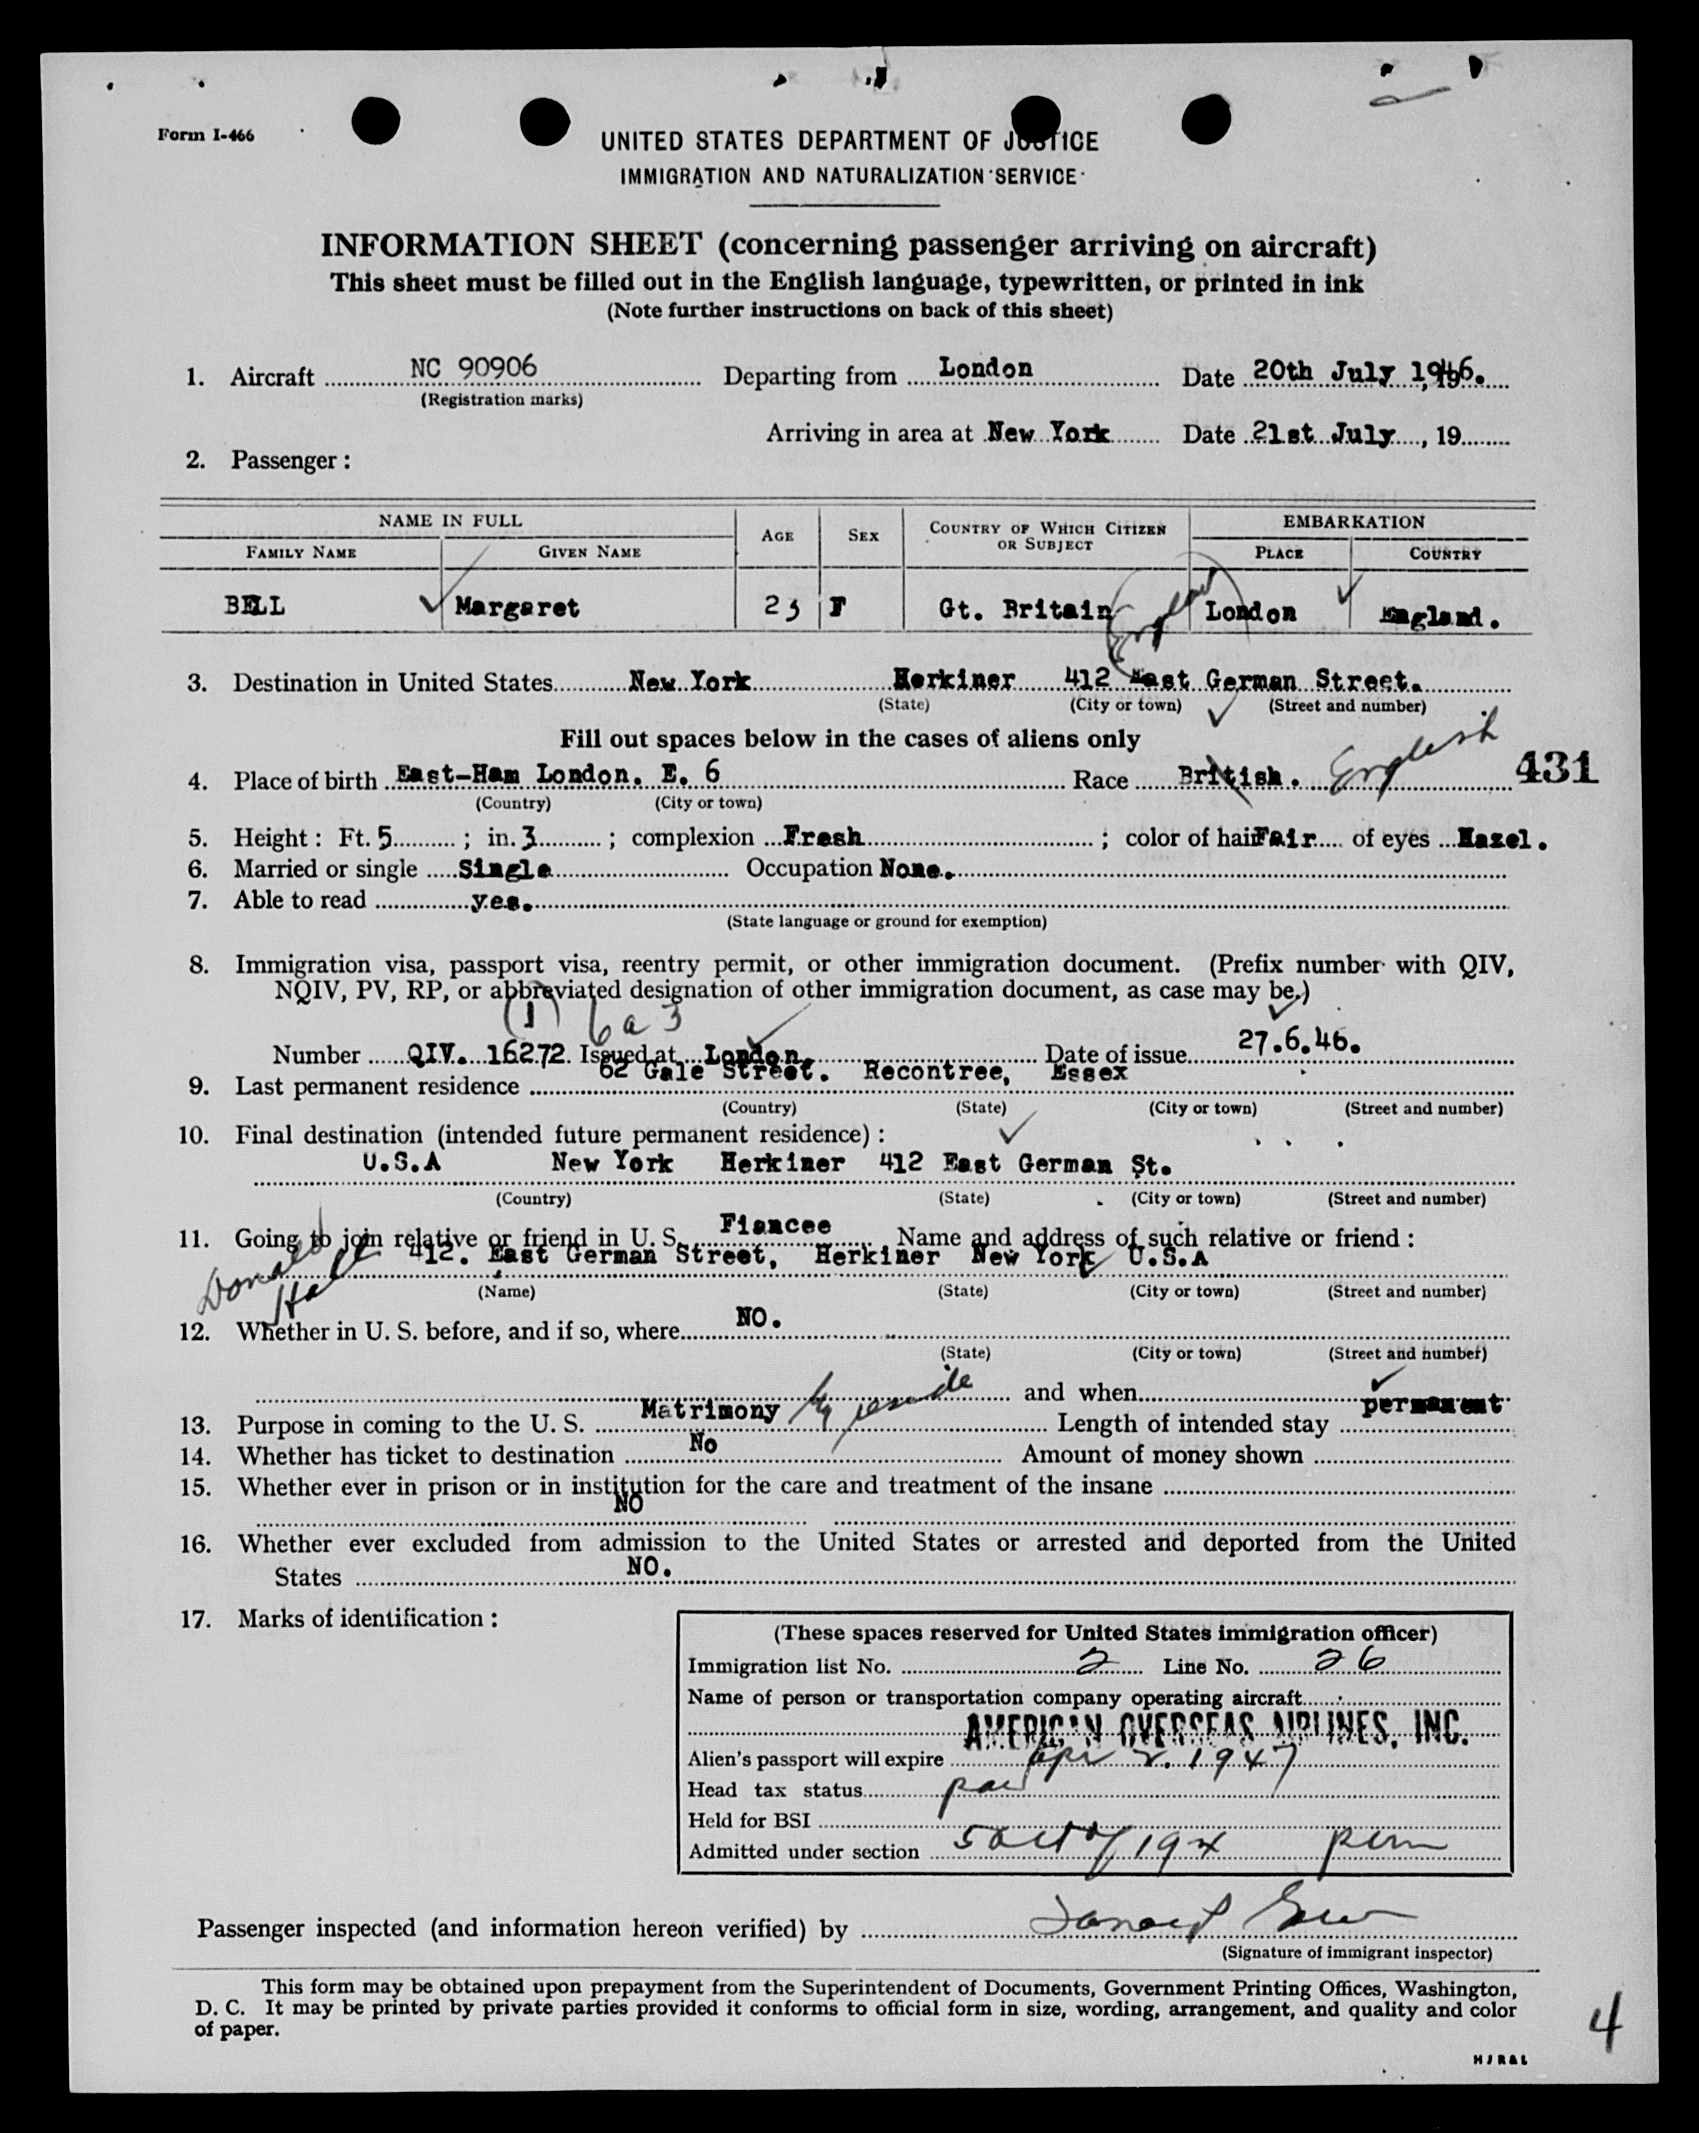 Form I-466
UNITED STATES DEPARTMENT OF JUSTICE
IMMIGRATION AND NATURALIZATION SERVICE
INFORMATION SHEET (concerning passenger arriving on aircraft)
This sheet must be filled out in the English language, typewritten, or printed in ink
(Note further instructions on back of this sheet)
1. Aircraft NC 90906 Departing from London Date 20th July 1946.
(Registration marks)
Arriving in area at New York Date 21st July, 19
2. Passenger:
NAME IN FULL AGE SEX COUNTRY OF WHICH CITIZEN OR SUBJECT EMBARKATION
FAMILY NAME GIVEN NAME PLACE COUNTRY
BELL Margaret 23 F Gt. Britain (England) London England.
3. Destination in United States New York Herkiner 412 East German Street.
(State) (City or town) (Street and number)
Fill out spaces below in the cases of aliens only
4. Place of birth East-Ham London. E. 6 Race British. English 431
(Country) (City or town)
5. Height: Ft. 5; in. 3; complexion Fresh; color of hair Fair of eyes Hazel.
6. Married or single Single Occupation None.
7. Able to read yes.
(State language or ground for exemption)
8. Immigration visa, passport visa, reentry permit, or other immigration document. (Prefix number with QIV,
NQIV, PV, RP, or abbreviated designation of other immigration document, as case may be.)
(1) 6 a 3
Number QIV. 16272. Issued at London. Date of issue 27.6.46.
9. Last permanent residence 62 Gale Street. Recontree, Essex
(Country) (State) (City or town) (Street and number)
10. Final destination (intended future permanent residence):
U.S.A New York Herkiner 412 East German St.
(Country) (State) (City or town) (Street and number)
11. Going to join relative or friend in U. S. Fiancee Name and address of such relative or friend:
Donald Hall 412. East German Street, Herkiner New York U.S.A
(Name) (State) (City or town) (Street and number)
12. Whether in U. S. before, and if so, where NO.
(State) (City or town) (Street and number)
and when
13. Purpose in coming to the U. S. Matrimony reside Length of intended stay permanent
14. Whether has ticket to destination No Amount of money shown
15. Whether ever in prison or in institution for the care and treatment of the insane
NO
16. Whether ever excluded from admission to the United States or arrested and deported from the United
States NO.
17. Marks of identification:
(These spaces reserved for United States immigration officer)
Immigration list No. 2 Line No. 26
Name of person or transportation company operating aircraft
AMERICAN OVERSEAS AIRLINES, INC.
Alien's passport will expire Apr 2. 1947
Head tax status
Held for BSI
Admitted under section 5 act of 1924 perm
Passenger inspected (and information hereon verified) by
(Signature of immigrant inspector)
This form may be obtained upon prepayment from the Superintendent of Documents, Government Printing Offices, Washington,
D. C. It may be printed by private parties provided it conforms to official form in size, wording, arrangement, and quality and color
of paper.
4